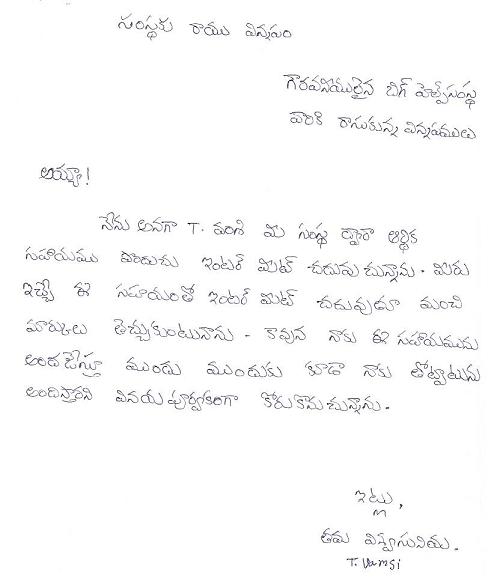 సంస్థకు రాయు విన్నపం
గౌరవనీయులైన బిగ్ హెల్ప్ సంస్థ
వారికి రాసుకున్న విన్నపములు
అయ్యా!
నేను అనగా T. వంశి మీ సంస్థ ద్వారా ఆర్థిక
సహాయము పొందుచు ఇంటర్ మీడిట్ చదువు చున్నాను. మీరు
ఇచ్చే ఈ సహాయంతో ఇంటర్ మీడిట్ చదువుతూ మంచి
మార్కులు తెచ్చుకుంటున్నాను - కావున నాకు ఈ సహాయమును
అందచేస్తూ ముందు ముందుకు కూడా నాకు తోడ్పాటును
అందిస్తారని వినయ పూర్వకంగా కోరుకొను చున్నాను.
ఇట్లు,
తమ విశ్వాసనీయ.
T. Vamsi